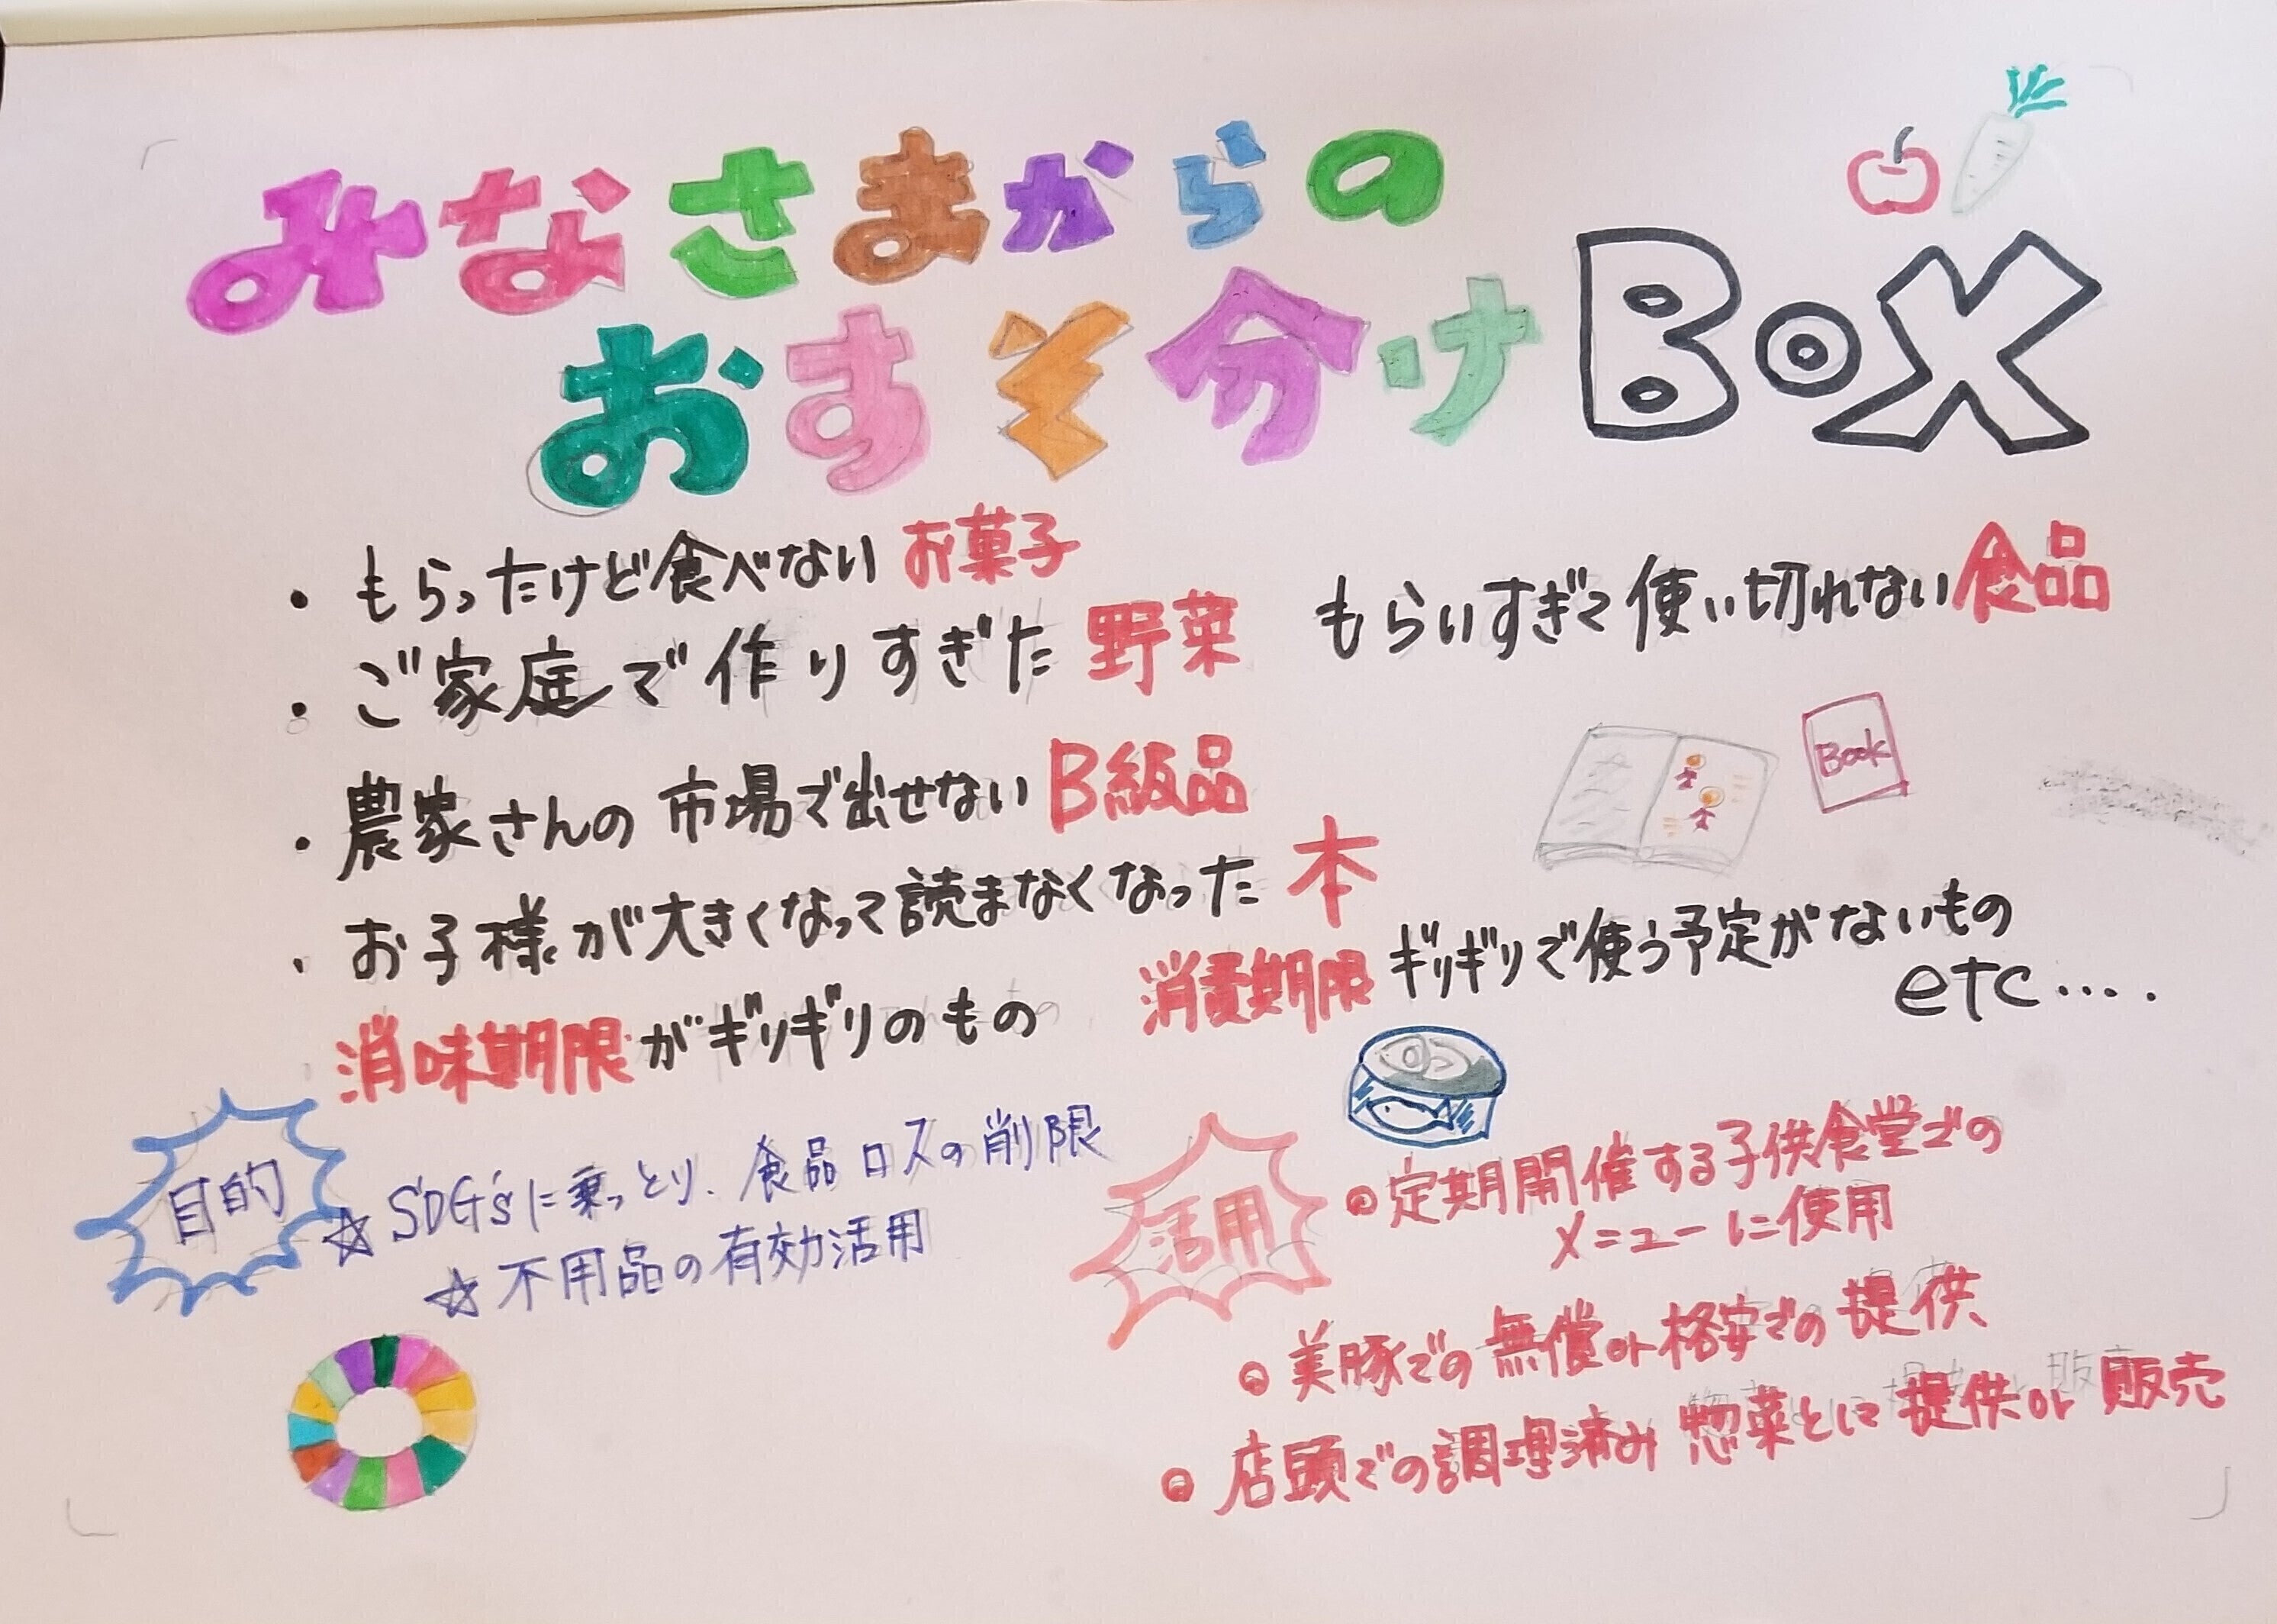 みなさまからの
おすそ分けBOX
・もらったけど食べないお菓子
・ご家庭で作りすぎた野菜 もらいすぎて使い切れない食品
・農家さんの市場で出せないB級品
Book
・お子様が大きくなって読まなくなった本
消味期限がギリギリのもの 消費期限ギリギリで使う予定がないもの
etc....
目的
☆SDG'sに乗っとり、食品ロスの削限
☆不用品の有効活用
活用
定期開催する子供食堂での
メニューに使用
美豚での無償or格安での提供
店頭での調理済み惣菜として提供or販売